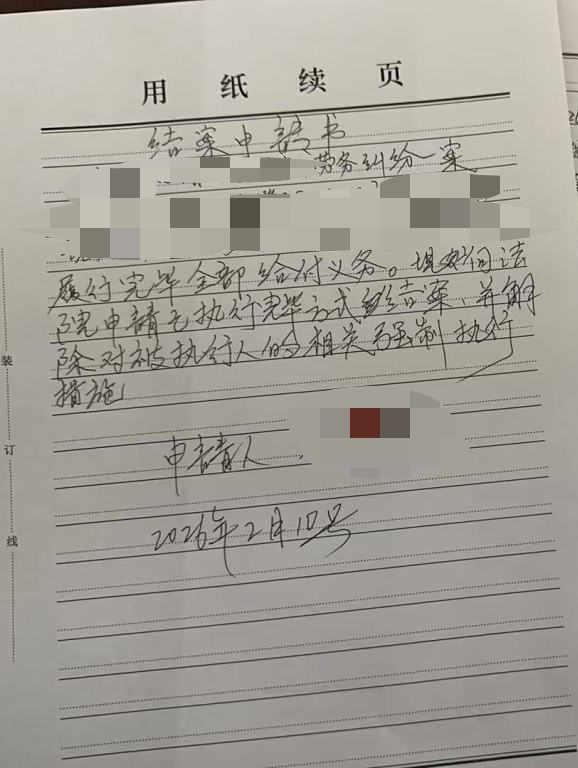 用纸续页
结案申请书
劳务纠纷一案
履行完毕全部给付义务。现好向法
院申请已执行完毕方式结案、并解
除对被执行人的相关强制执行
措施
申请人
2026年2月10号
装
订
线